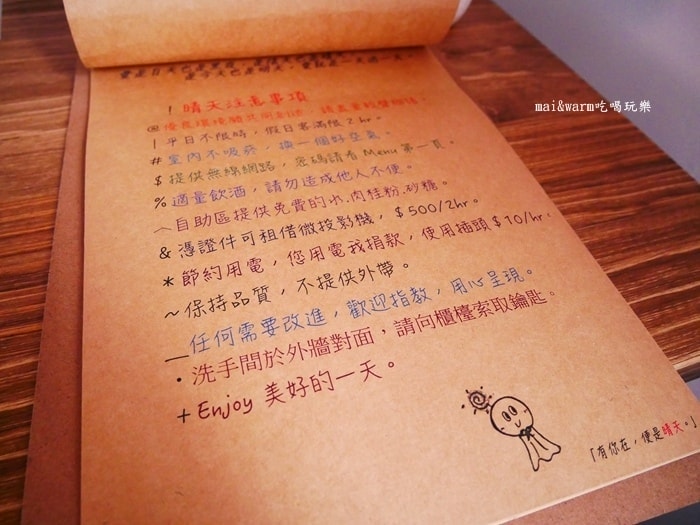 mai&warm吃喝玩樂
! 晴天注意事項
@優良環境願共同創活，請盡量輕聲細語。
| 平日不限時，假日客滿限2hr。
# 室內不吸菸，換一個好空氣。
$ 提供無線網路，密碼請看Menu第一頁。
% 適量飲酒，請勿造成他人不便。
︿自助區提供免費的水.肉桂粉.砂糖。
& 憑證件可租借微投影機，$500/2hr。
* 節約用電，您用電我捐款，使用插頭$10/hr。
~ 保持品質，不提供外帶。
＿任何需要改進，歡迎指教，用心呈現。
· 洗手間於外牆對面，請向櫃檯索取鑰匙。
+ Enjoy 美好的一天。
「有你在，便是晴天。」